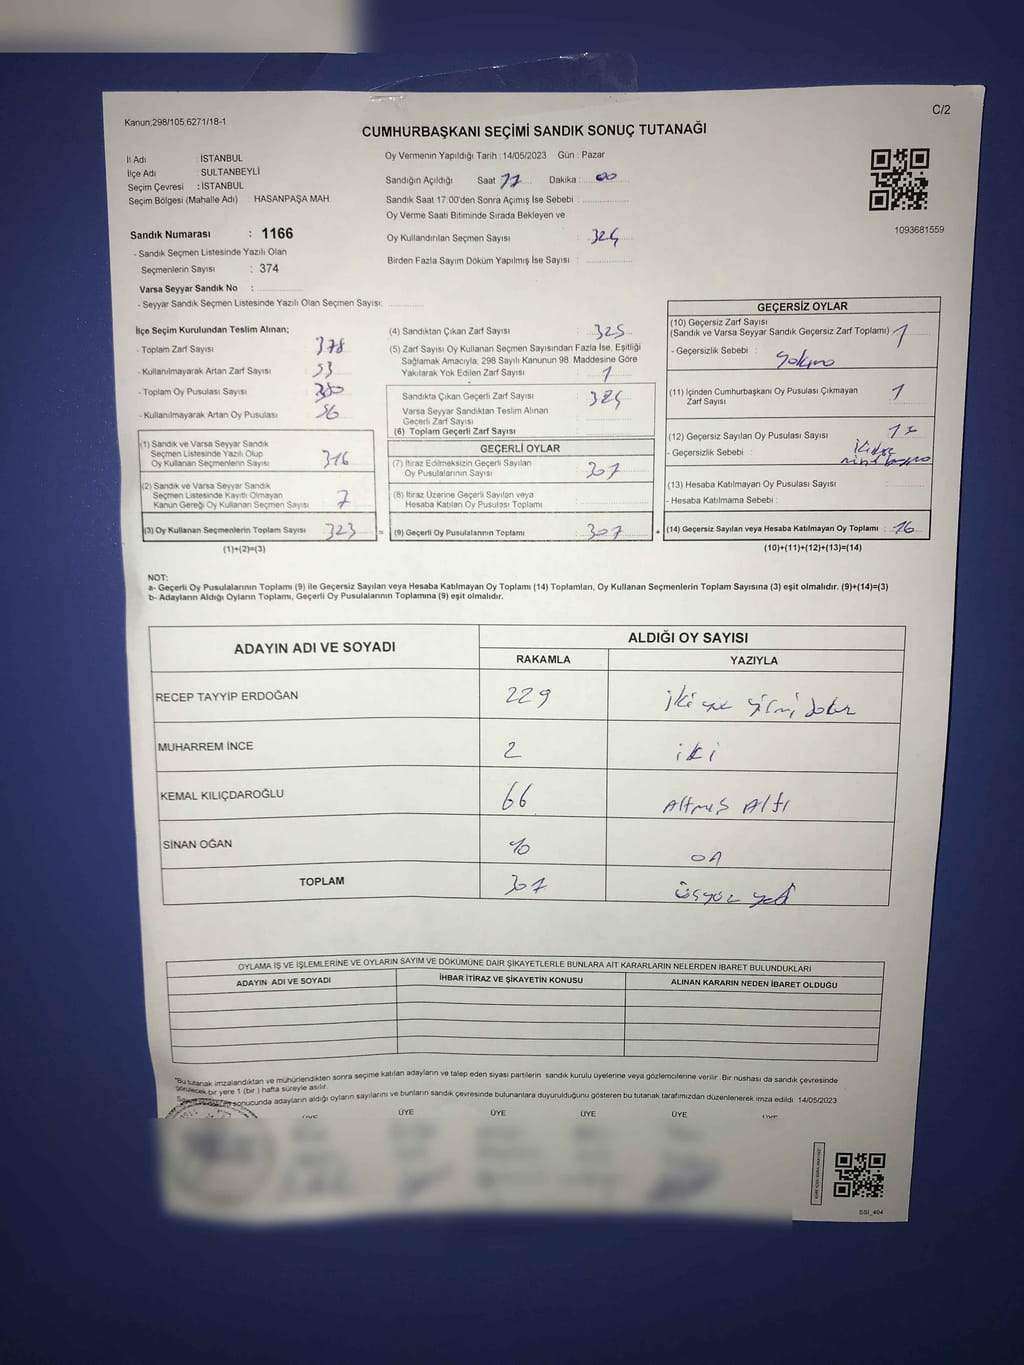 Kanun;298/105,6271/18-1
C/2
CUMHURBAŞKANI SEÇİMİ SANDIK SONUÇ TUTANAĞI
İl Adı : İSTANBUL
İlçe Adı : SULTANBEYLİ
Seçim Çevresi : İSTANBUL
Seçim Bölgesi (Mahalle Adı) : HASANPAŞA MAH.
Sandık Numarası : 1166
- Sandık Seçmen Listesinde Yazılı Olan
Seçmenlerin Sayısı : 374
Varsa Seyyar Sandık No :
- Seyyar Sandık Seçmen Listesinde Yazılı Olan Seçmen Sayısı:
Oy Vermenin Yapıldığı Tarih : 14/05/2023 Gün : Pazar
Sandığın Açıldığı Saat 17 Dakika : 00
Sandık Saat 17.00'den Sonra Açımış İse Sebebi :
Oy Verme Saati Bitiminde Sırada Bekleyen ve
Oy Kullandırılan Seçmen Sayısı : 324
Birden Fazla Sayım Döküm Yapılmış İse Sayısı :
1093681559
İlçe Seçim Kurulundan Teslim Alınan;
- Toplam Zarf Sayısı : 378
- Kullanılmayarak Artan Zarf Sayısı : 53
- Toplam Oy Pusulası Sayısı : 380
- Kullanılmayarak Artan Oy Pusulası : 56
(1) Sandık ve Varsa Seyyar Sandık
Seçmen Listesinde Yazılı Olup
Oy Kullanan Seçmenlerin Sayısı : 316
(2) Sandık ve Varsa Seyyar Sandık
Seçmen Listesinde Kayıtlı Olmayan
Kanun Gereği Oy Kullanan Seçmen Sayısı : 7
(3) Oy Kullanan Seçmenlerin Toplam Sayısı : 323 =
(1)+(2)=(3)
(4) Sandıktan Çıkan Zarf Sayısı : 325
(5) Zarf Sayısı Oy Kullanan Seçmen Sayısından Fazla İse, Eşitliği
Sağlamak Amacıyla, 298 Sayılı Kanunun 98. Maddesine Göre
Yakılarak Yok Edilen Zarf Sayısı : 1
Sandıkta Çıkan Geçerli Zarf Sayısı : 324
Varsa Seyyar Sandıktan Teslim Alınan
Geçerli Zarf Sayısı :
(6) Toplam Geçerli Zarf Sayısı :
GEÇERLİ OYLAR
(7) İtiraz Edilmeksizin Geçerli Sayılan
Oy Pusulalarının Sayısı : 307
(8) İtiraz Üzerine Geçerli Sayılan veya
Hesaba Katılan Oy Pusulası Toplamı :
(9) Geçerli Oy Pusulalarının Toplamı : 307 +
GEÇERSİZ OYLAR
(10) Geçersiz Zarf Sayısı
(Sandık ve Varsa Seyyar Sandık Geçersiz Zarf Toplamı) : 1
- Geçersizlik Sebebi :
(11) İçinden Cumhurbaşkanı Oy Pusulası Çıkmayan
Zarf Sayısı : 1
(12) Geçersiz Sayılan Oy Pusulası Sayısı :
- Geçersizlik Sebebi :
(13) Hesaba Katılmayan Oy Pusulası Sayısı :
- Hesaba Katılmama Sebebi :
(14) Geçersiz Sayılan veya Hesaba Katılmayan Oy Toplamı : 16
(10)+(11)+(12)+(13)=(14)
NOT:
a- Geçerli Oy Pusulalarının Toplamı (9) ile Geçersiz Sayılan veya Hesaba Katılmayan Oy Toplamı (14) Toplamları, Oy Kullanan Seçmenlerin Toplam Sayısına (3) eşit olmalıdır. (9)+(14)=(3)
b- Adayların Aldığı Oyların Toplamı, Geçerli Oy Pusulalarının Toplamına (9) eşit olmalıdır.
ADAYIN ADI VE SOYADI
ALDIĞI OY SAYISI
RAKAMLA YAZIYLA
RECEP TAYYİP ERDOĞAN 229 iki yüz yirmi dokuz
MUHARREM İNCE 2 iki
KEMAL KILIÇDAROĞLU 66 Altmış Altı
SİNAN OĞAN 10 on
TOPLAM 307 üçyüz yedi
OYLAMA İŞ VE İŞLEMLERİNE VE OYLARIN SAYIM VE DÖKÜMÜNE DAİR ŞİKAYETLERLE BUNLARA AİT KARARLARIN NELERDEN İBARET BULUNDUKLARI
ADAYIN ADI VE SOYADI İHBAR İTİRAZ VE ŞİKAYETİN KONUSU ALINAN KARARIN NEDEN İBARET OLDUĞU
*Bu tutanak imzalandıktan ve mühürlendikten sonra seçime katılan adayların ve talep eden siyasi partilerin sandık kurulu üyelerine veya gözlemcilerine verilir. Bir nüshası da sandık çevresinde
görülecek bir yere 1 (bir) hafta süreyle asılır.
sonucunda adayların aldığı oyların sayılarını ve bunların sandık çevresinde bulunanlara duyurulduğunu gösteren bu tutanak tarafımızdan düzenlenerek imza edildi. 14/05/2023
ÜYE ÜYE ÜYE ÜYE ÜYE ÜYE
SSI_404